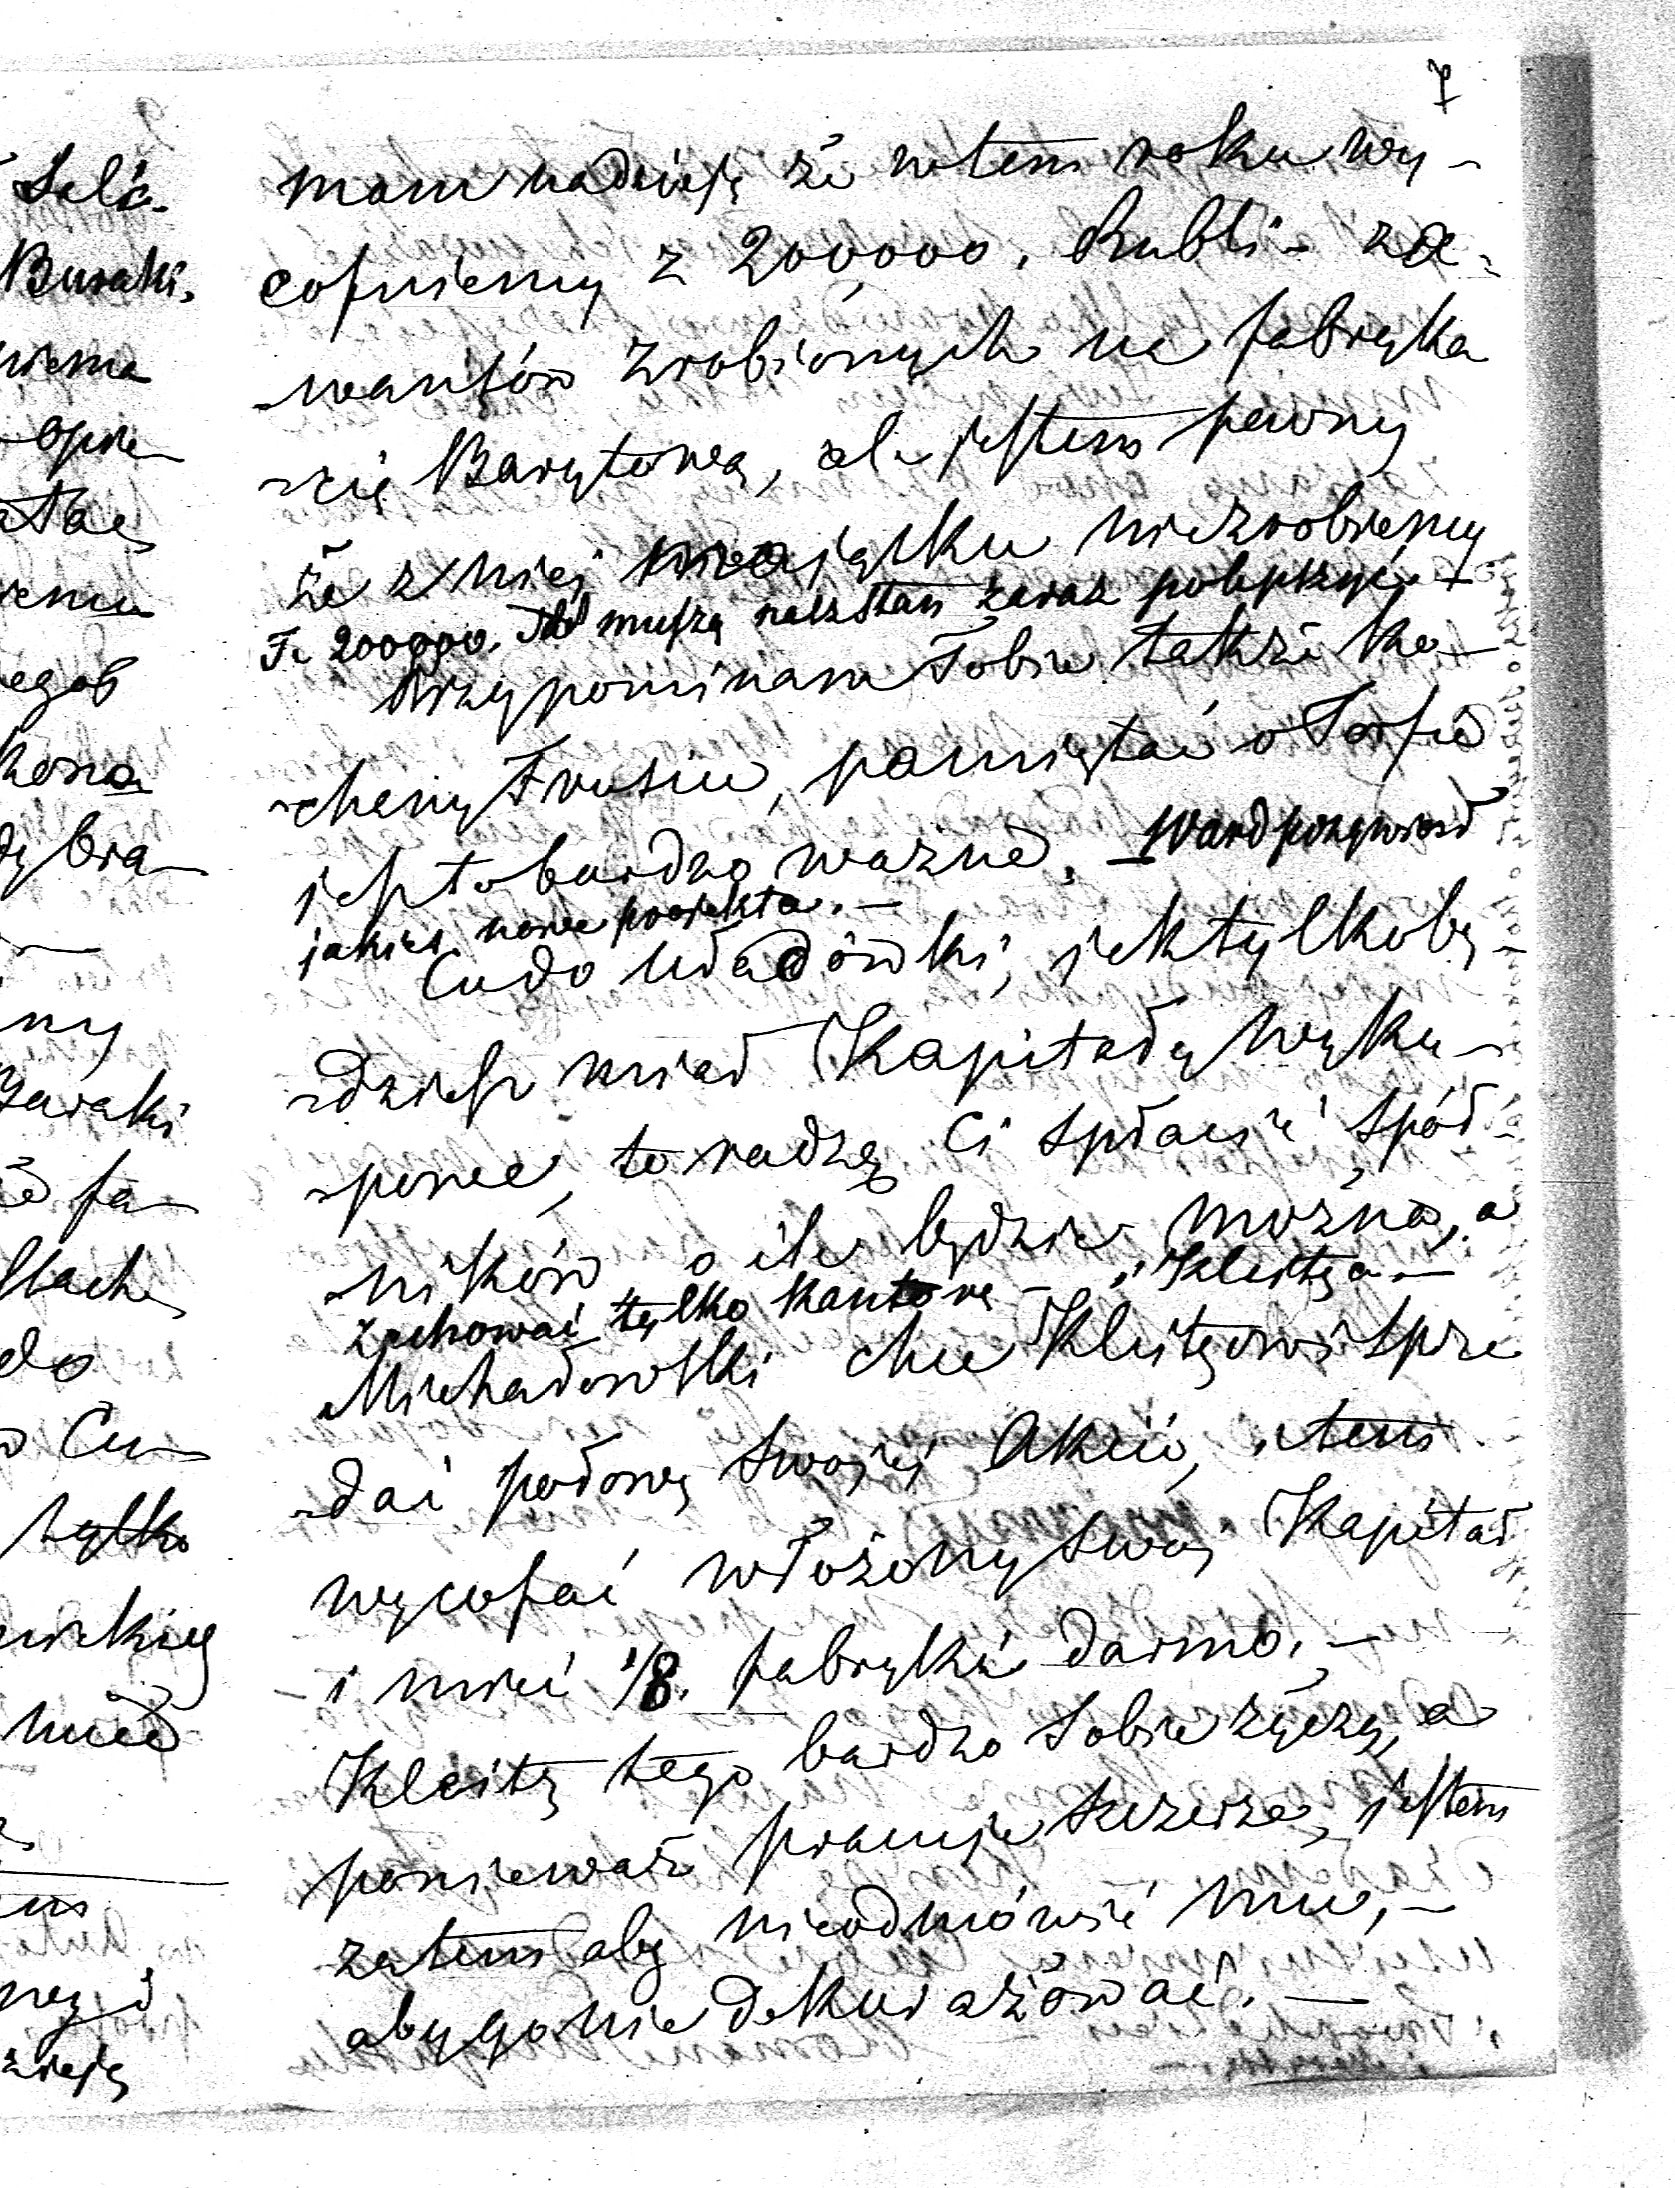 7
mam nadzieję że w tem roku wy-
cofniemy z 200,000. Rubli - za-
-wansów zrobionych na fabryka
-cię Barytową, ale jestem pewny
że z niej majątku niezrobiemy
Te 200000. muszą nasz stan zaraz polepszyć. +
Przypominam Tobie także ko-
-chany Frusiu, pamiętać o Torfie
jest to bardzo ważne. - Ward przywiózł
jakieś nowe projekta. -
Co do Uładówki, jak tylko bę-
-dziesz miał Kapitały wyku-
-pone, to radzę Ci spłacić spół-
-ników o ile będzie można, a
zachować tylko Kantora - i Kleitza -
Michałowski chce Kleitzowi sprze
-dać połowę swojej Akcii, i tem
wycofać włożony swój Kapitał
- i mieć 1/8. fabryki darmo. -
Kleitz tego bardzo sobie życzy, a
ponieważ pracuje szczerze, jestem
zatem aby nieodmówić mu, -
aby go nie dekurażować. -
Busaki.
niema
egob
kona
dybra
ny
do
Cu-
tylko